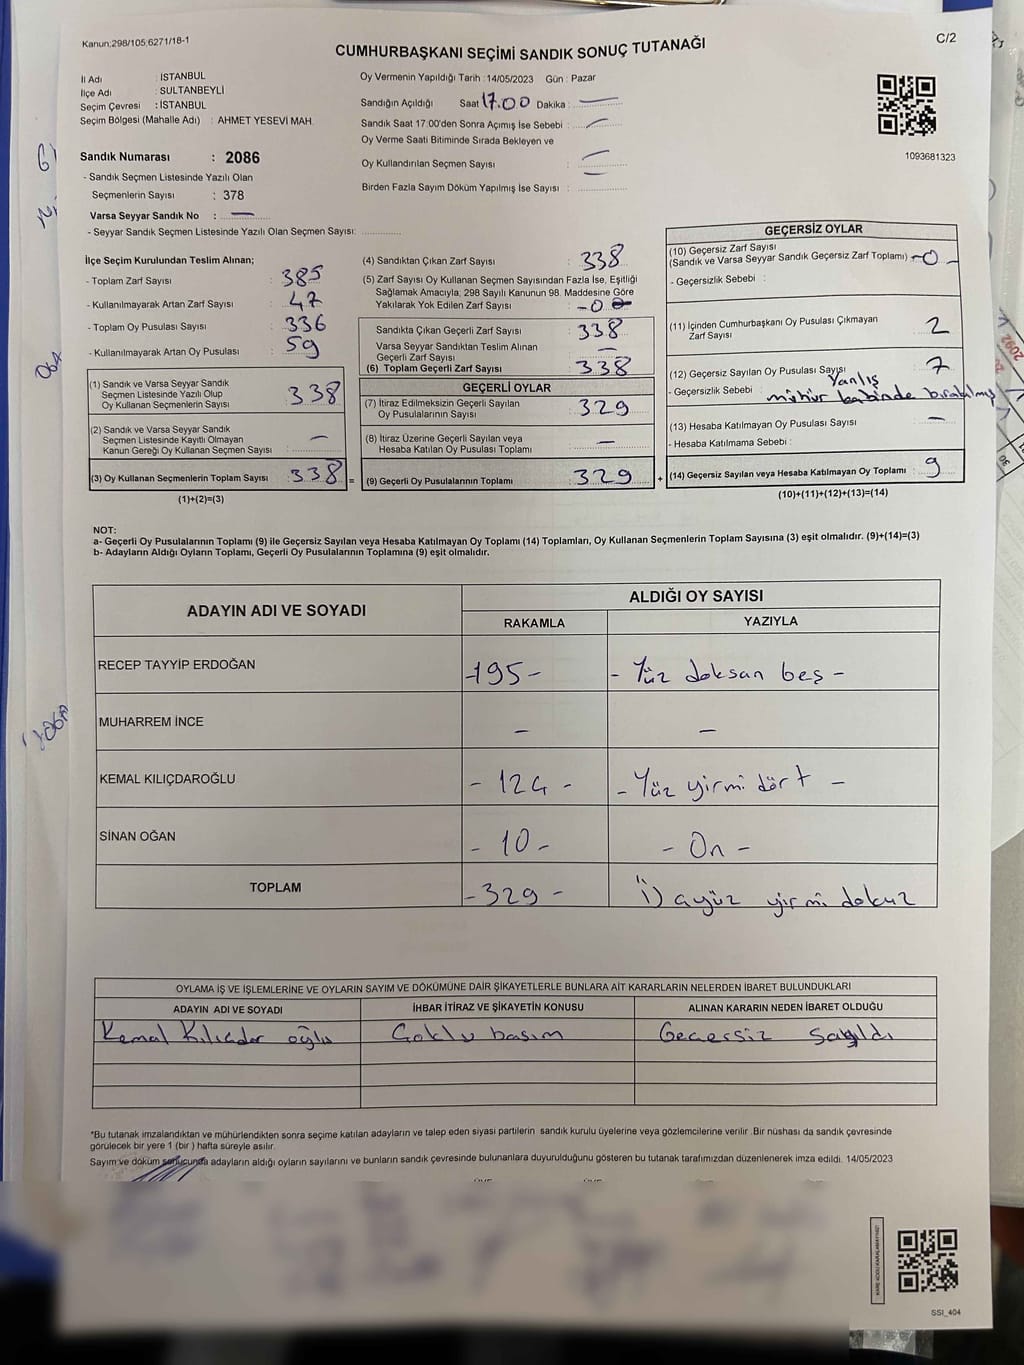 Kanun:298/105;6271/18-1
C/2
CUMHURBAŞKANI SEÇİMİ SANDIK SONUÇ TUTANAĞI
İl Adı : İSTANBUL
İlçe Adı : SULTANBEYLİ
Seçim Çevresi : İSTANBUL
Seçim Bölgesi (Mahalle Adı) : AHMET YESEVİ MAH.
Sandık Numarası : 2086
- Sandık Seçmen Listesinde Yazılı Olan
Seçmenlerin Sayısı : 378
Varsa Seyyar Sandık No : —
- Seyyar Sandık Seçmen Listesinde Yazılı Olan Seçmen Sayısı: ..............
Oy Vermenin Yapıldığı Tarih : 14/05/2023 Gün : Pazar
Sandığın Açıldığı Saat 17.00 Dakika : —
Sandık Saat 17.00'den Sonra Açımış İse Sebebi : —
Oy Verme Saati Bitiminde Sırada Bekleyen ve
Oy Kullandırılan Seçmen Sayısı : —
Birden Fazla Sayım Döküm Yapılmış İse Sayısı : —
1093681323
İlçe Seçim Kurulundan Teslim Alınan;
- Toplam Zarf Sayısı : 385
- Kullanılmayarak Artan Zarf Sayısı : 47
- Toplam Oy Pusulası Sayısı : 336
- Kullanılmayarak Artan Oy Pusulası : 59
(1) Sandık ve Varsa Seyyar Sandık
Seçmen Listesinde Yazılı Olup
Oy Kullanan Seçmenlerin Sayısı : 338
(2) Sandık ve Varsa Seyyar Sandık
Seçmen Listesinde Kayıtlı Olmayan
Kanun Gereği Oy Kullanan Seçmen Sayısı : —
(3) Oy Kullanan Seçmenlerin Toplam Sayısı : 338 =
(1)+(2)=(3)
(4) Sandıktan Çıkan Zarf Sayısı : 338
(5) Zarf Sayısı Oy Kullanan Seçmen Sayısından Fazla İse, Eşitliği
Sağlamak Amacıyla, 298 Sayılı Kanunun 98. Maddesine Göre
Yakılarak Yok Edilen Zarf Sayısı : -0
Sandıkta Çıkan Geçerli Zarf Sayısı : 338
Varsa Seyyar Sandıktan Teslim Alınan
Geçerli Zarf Sayısı : —
(6) Toplam Geçerli Zarf Sayısı : 338
GEÇERLİ OYLAR
(7) İtiraz Edilmeksizin Geçerli Sayılan
Oy Pusulalarının Sayısı : 329
(8) İtiraz Üzerine Geçerli Sayılan veya
Hesaba Katılan Oy Pusulası Toplamı : —
(9) Geçerli Oy Pusulalarının Toplamı : 329 +
GEÇERSİZ OYLAR
(10) Geçersiz Zarf Sayısı
(Sandık ve Varsa Seyyar Sandık Geçersiz Zarf Toplamı) -0-
- Geçersizlik Sebebi :
(11) İçinden Cumhurbaşkanı Oy Pusulası Çıkmayan
Zarf Sayısı : 2
(12) Geçersiz Sayılan Oy Pusulası Sayısı : 7
- Geçersizlik Sebebi : Yanlış
mühür kabinde bırakılmış
(13) Hesaba Katılmayan Oy Pusulası Sayısı : —
- Hesaba Katılmama Sebebi :
(14) Geçersiz Sayılan veya Hesaba Katılmayan Oy Toplamı : 9
(10)+(11)+(12)+(13)=(14)
NOT:
a- Geçerli Oy Pusulalarının Toplamı (9) ile Geçersiz Sayılan veya Hesaba Katılmayan Oy Toplamı (14) Toplamları, Oy Kullanan Seçmenlerin Toplam Sayısına (3) eşit olmalıdır. (9)+(14)=(3)
b- Adayların Aldığı Oyların Toplamı, Geçerli Oy Pusulalarının Toplamına (9) eşit olmalıdır.
ADAYIN ADI VE SOYADI
ALDIĞI OY SAYISI
RAKAMLA YAZIYLA
RECEP TAYYİP ERDOĞAN -195- - Yüz doksan beş -
MUHARREM İNCE - -
KEMAL KILIÇDAROĞLU - 124 - - Yüz yirmi dört -
SİNAN OĞAN - 10 - - On -
TOPLAM -329- Üçyüz yirmi dokuz
OYLAMA İŞ VE İŞLEMLERİNE VE OYLARIN SAYIM VE DÖKÜMÜNE DAİR ŞİKAYETLERLE BUNLARA AİT KARARLARIN NELERDEN İBARET BULUNDUKLARI
ADAYIN ADI VE SOYADI İHBAR İTİRAZ VE ŞİKAYETİN KONUSU ALINAN KARARIN NEDEN İBARET OLDUĞU
Kemal Kılıçdar oğlu Çoklu basım Geçersiz sayıldı
*Bu tutanak imzalandıktan ve mühürlendikten sonra seçime katılan adayların ve talep eden siyasi partilerin sandık kurulu üyelerine veya gözlemcilerine verilir .Bir nüshası da sandık çevresinde
görülecek bir yere 1 (bir ) hafta süreyle asılır.
Sayım ve döküm sonucunda adayların aldığı oyların sayılarını ve bunların sandık çevresinde bulunanlara duyurulduğunu gösteren bu tutanak tarafımızdan düzenlenerek imza edildi. 14/05/2023
SSI_404